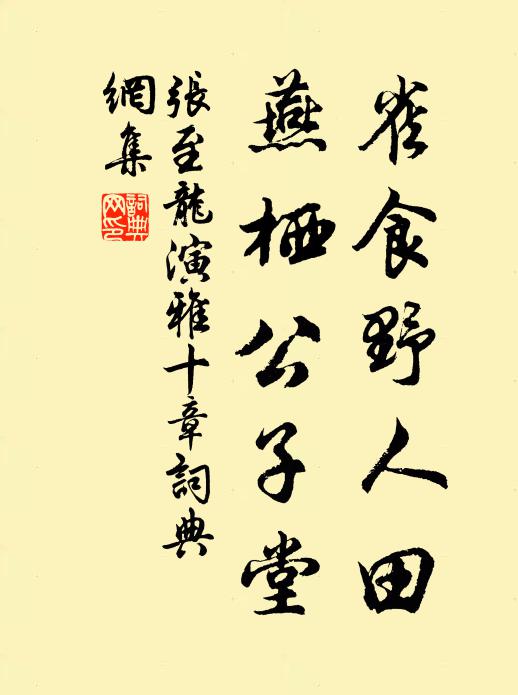 雀食野人田
燕栖公子堂
張至龍演雅十章詞典
網集
詞典
网印